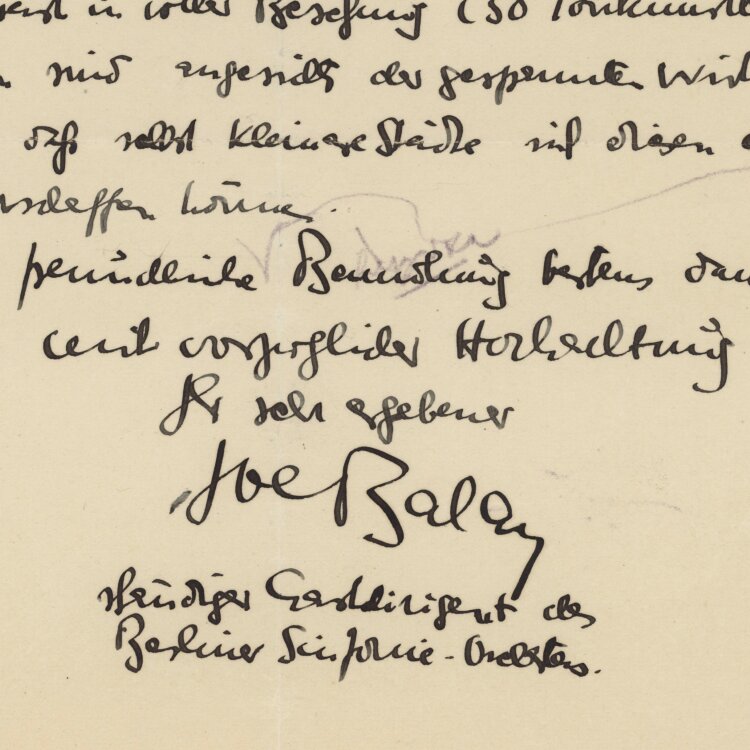 in voller Besetzung (50 Tonkünstle
sind angesichts der gespannten Wirt
daß selbst kleinere Städte sich diesen
schaffen können.
freundliche Bemühung bestens dan
mit vorzüglicher Hochachtung
Ihr sehr ergebener
Joe Balay
ständiger Gastdirigent des
Berliner Sinfonie-Orchesters.